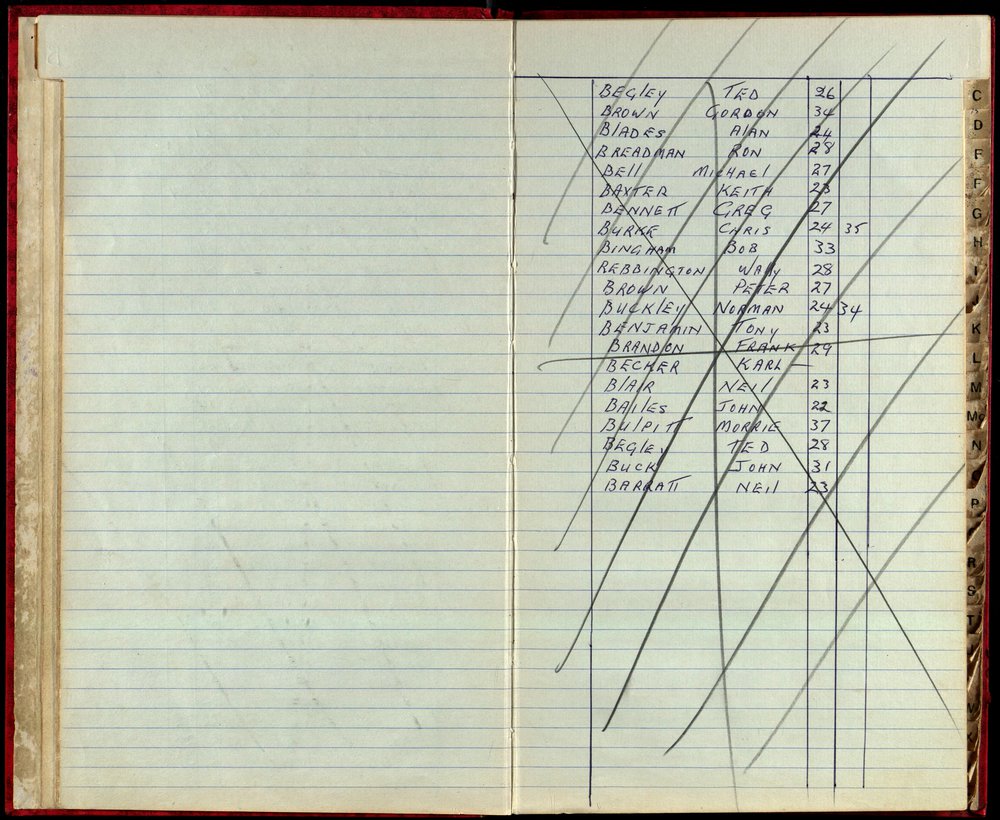 BEGLEY TED 26
BROWN GORDON 34
BLADES ALAN 24
BREADMAN RON 28
BELL MICHAEL 27
BAXTER KEITH 23
BENNETT GREG 27
BURKE CHRIS 24 35
BINGHAM BOB 33
REBBINGTON WALLY 28
BROWN PETER 27
BUCKLEY NORMAN 24 34
BENJAMIN TONY 23
BRANDON FRANK 29
BECKER KARL —
BLAIR NEIL 23
BAILES JOHN 22
BULPITT MORRIE 37
BEGLEY TED 28
BUCK JOHN 31
BARRATT NEIL 23
C
D
F
F
G
H
I
J
K
L
M
Mc
N
P
R
S
T